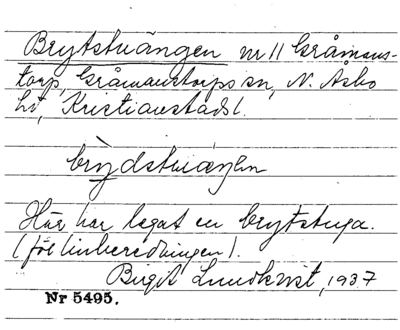 Brytstuängen nr 11 Gråmans-
torp, Gråmanstorps sn, N. Åsbo
hd, Kristianstads l.
brỳdstuäŋən
Här har legat en brytstuga.
(för linberedningen).
Birgit Lundkvist, 1937
Nr 5495.